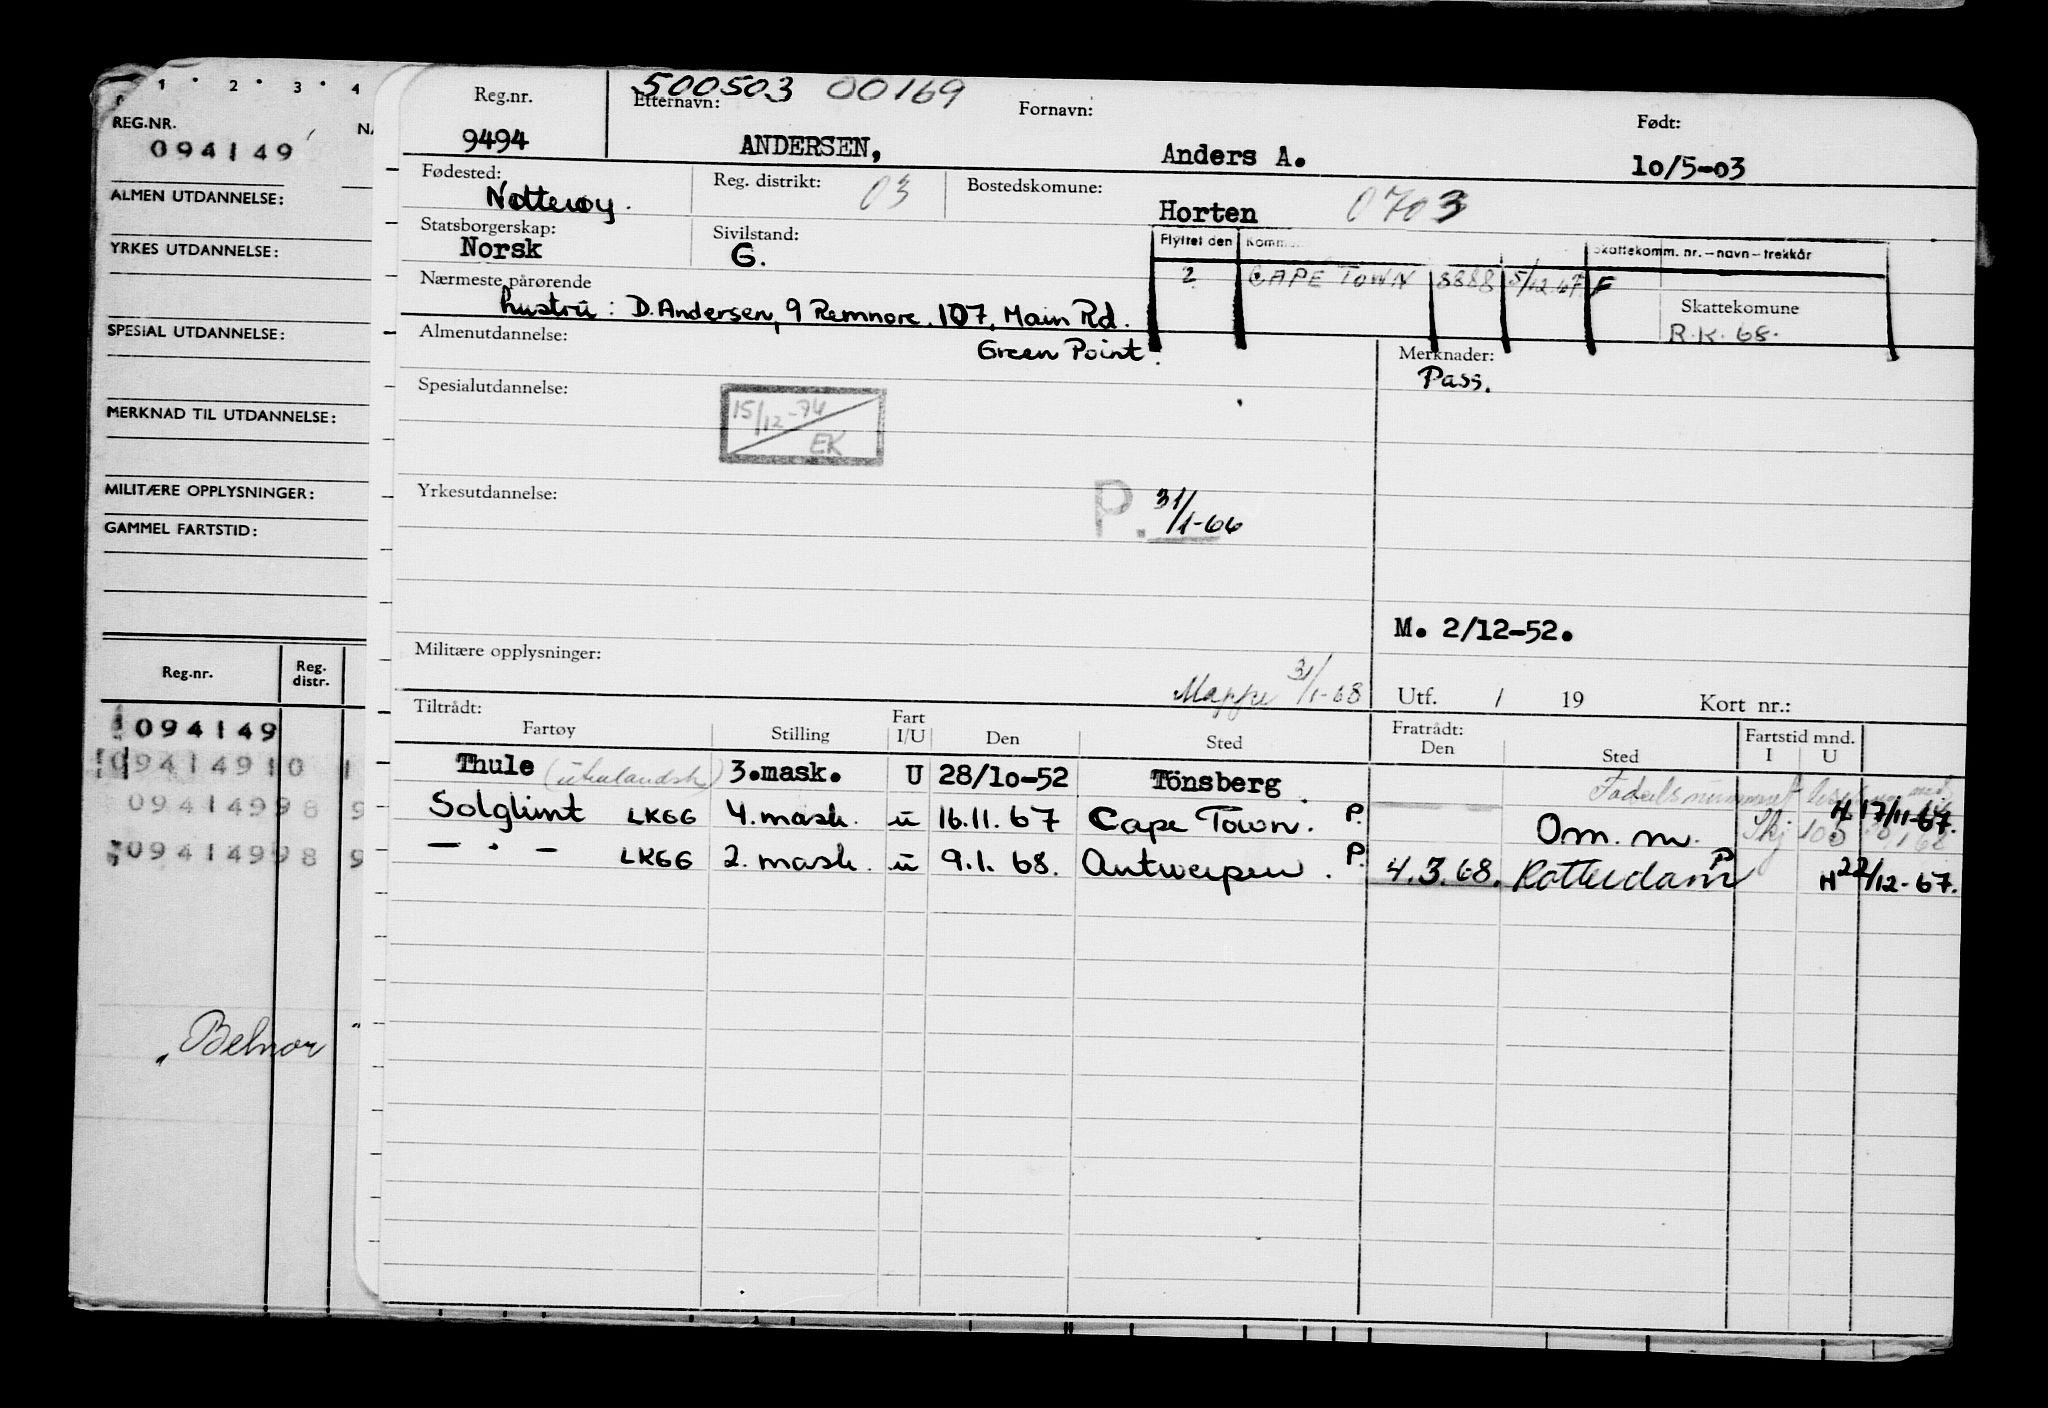 1 2 3 4
REG.NR.
094149
ALMEN UTDANNELSE:
YRKES UTDANNELSE:
SPESIAL UTDANNELSE:
MERKNAD TIL UTDANNELSE:
MILITÆRE OPPLYSNINGER:
GAMMEL FARTSTID:
Reg.nr. Reg. distr.
094149
09414910 1
09414998 9
09414998 9
„Belnor"
500503 00169
Reg.nr. Etternavn: Fornavn: Født:
9494 ANDERSEN, Anders A. 10/5-03
Fødested: Reg. distrikt: 03 Bostedskomune:
Nøtterøy. Horten 0703
Statsborgerskap: Sivilstand:
Norsk G.
Flyttet den Komm Skattekomm. nr.-navn-trekkår
2 CAPE TOWN 8888 5/12 67 F
Nærmeste pårørende Skattekomune
hustru: D. Andersen, 9 Remnore. 107, Main Rd. R.K. 68.
Green Point.
Almenutdannelse: Merknader:
Pass.
Spesialutdannelse:
15/12-74
EK
Yrkesutdannelse:
P. 31/1-66
M. 2/12-52.
Militære opplysninger:
Mappe 31/1-68 Utf. / 19 Kort nr.:
Tiltrådt: Fratrådt: Fartstid mnd.
Fartøy Stilling Fart I/U Den Sted Den Sted I U
Thule (utenlandsk) 3.mask. U 28/10-52 Tönsberg
Solglimt LKGG 4. mask. u 16.11.67 Cape Town. P. Om. m. H 17/11-67.
— " — LKGG 2. mask. u 9.1.68. Antwerpen. P. 4.3.68. Rotterdam P H 22/12-67.